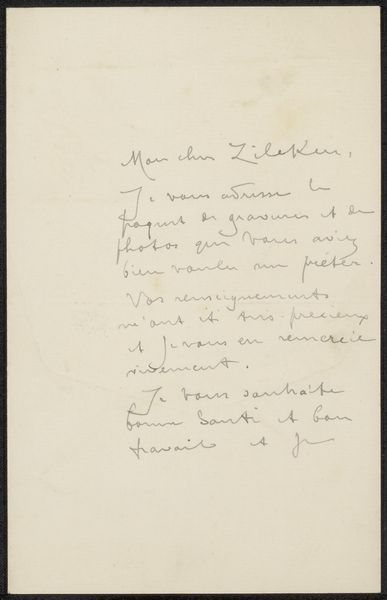 Mon cher Zilcken,
Je vous adresse le
paquet de gravures et de
photos que vous aviez
bien voulu me prêter.
Vos renseignements
m'ont été très précieux
et je vous en remercie
vivement.
Je vous souhaite
bonne santé et bon
travail et je